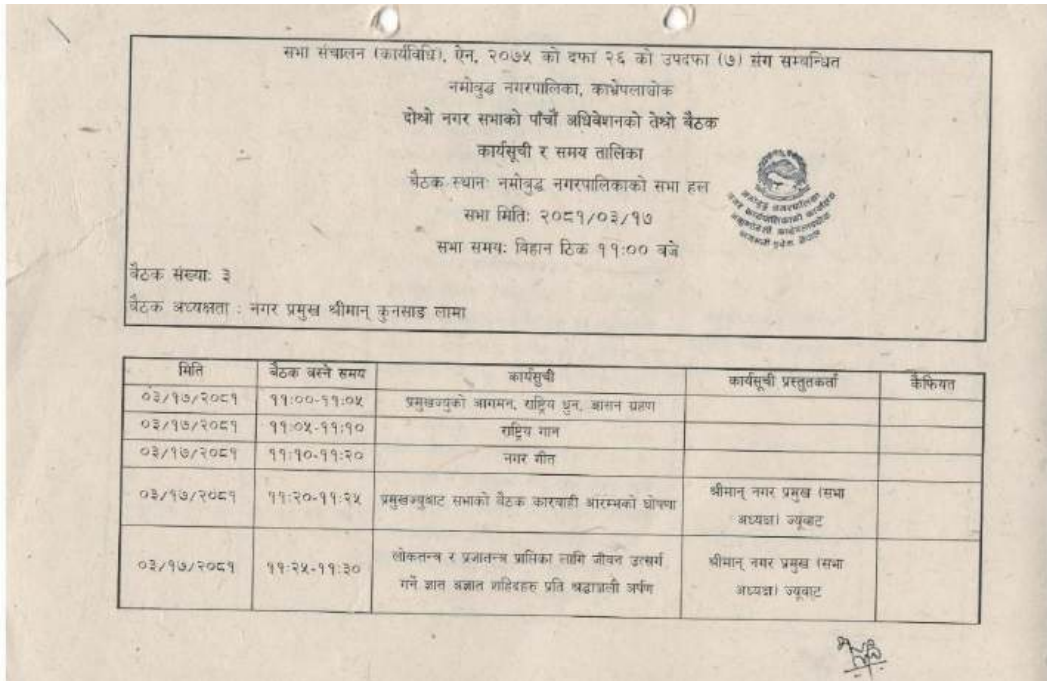 सभा संचालन (कार्यविधि), ऐन, २०७५ को दफा २६ को उपदफा (७) संग सम्बन्धित
नमोबुद्ध नगरपालिका, काभ्रेपलाञ्चोक
दोश्रो नगर सभाको पाँचौं अधिवेशनको तेश्रो बैठक
कार्यसूची र समय तालिका
बैठक स्थानः नमोबुद्ध नगरपालिकाको सभा हल
सभा मितिः २०८१/०३/१७
सभा समयः विहान ठिक ११:०० बजे
बैठक संख्याः ३
बैठक अध्यक्षता : नगर प्रमुख श्रीमान् कुनसाङ लामा
नमोबुद्ध नगरपालिका
नगर कार्यपालिकाको कार्यालय
मिति बैठक बस्ने समय कार्यसुची कार्यसूची प्रस्तुतकर्ता कैफियत
०३/१७/२०८१ ११:००-११:०५ प्रमुखज्युको आगमन, राष्ट्रिय धुन, आसन ग्रहण
०३/१७/२०८१ ११:०५-११:१० राष्ट्रिय गान
०३/१७/२०८१ ११:१०-११:२० नगर गीत
०३/१७/२०८१ ११:२०-११:२५ प्रमुखज्युबाट सभाको बैठक कारवाही आरम्भको घोषणा श्रीमान् नगर प्रमुख (सभा
अध्यक्ष) ज्यूबाट
०३/१७/२०८१ ११:२५-११:३० लोकतन्त्र र प्रजातन्त्र प्राप्तिका लागि जीवन उत्सर्ग श्रीमान् नगर प्रमुख (सभा
गर्ने ज्ञात अज्ञात शहिदहरु प्रति श्रद्धाञ्जली अर्पण अध्यक्ष) ज्यूबाट